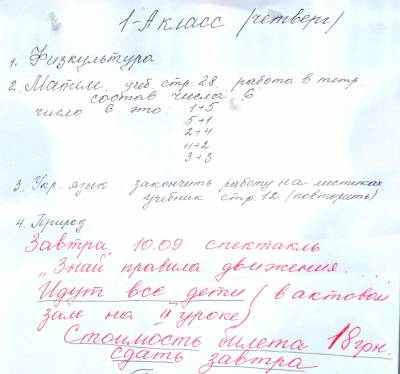 1-А класс (четверг)
1. Физкультура
2. Матем. учеб. стр. 28. работа в тетр.
состав числа 6
число 6 это: 1+5
5+1
2+4
4+2
3+3
3. Укр. язык. закончить работу на листиках
учебник стр. 12 (повторить)
4. Природ.
Завтра 10.09 спектакль
"Знай правила движения....
Идут все дети (в актовом
зале на II уроке)
Стоимость билета 18 грн.
сдать завтра